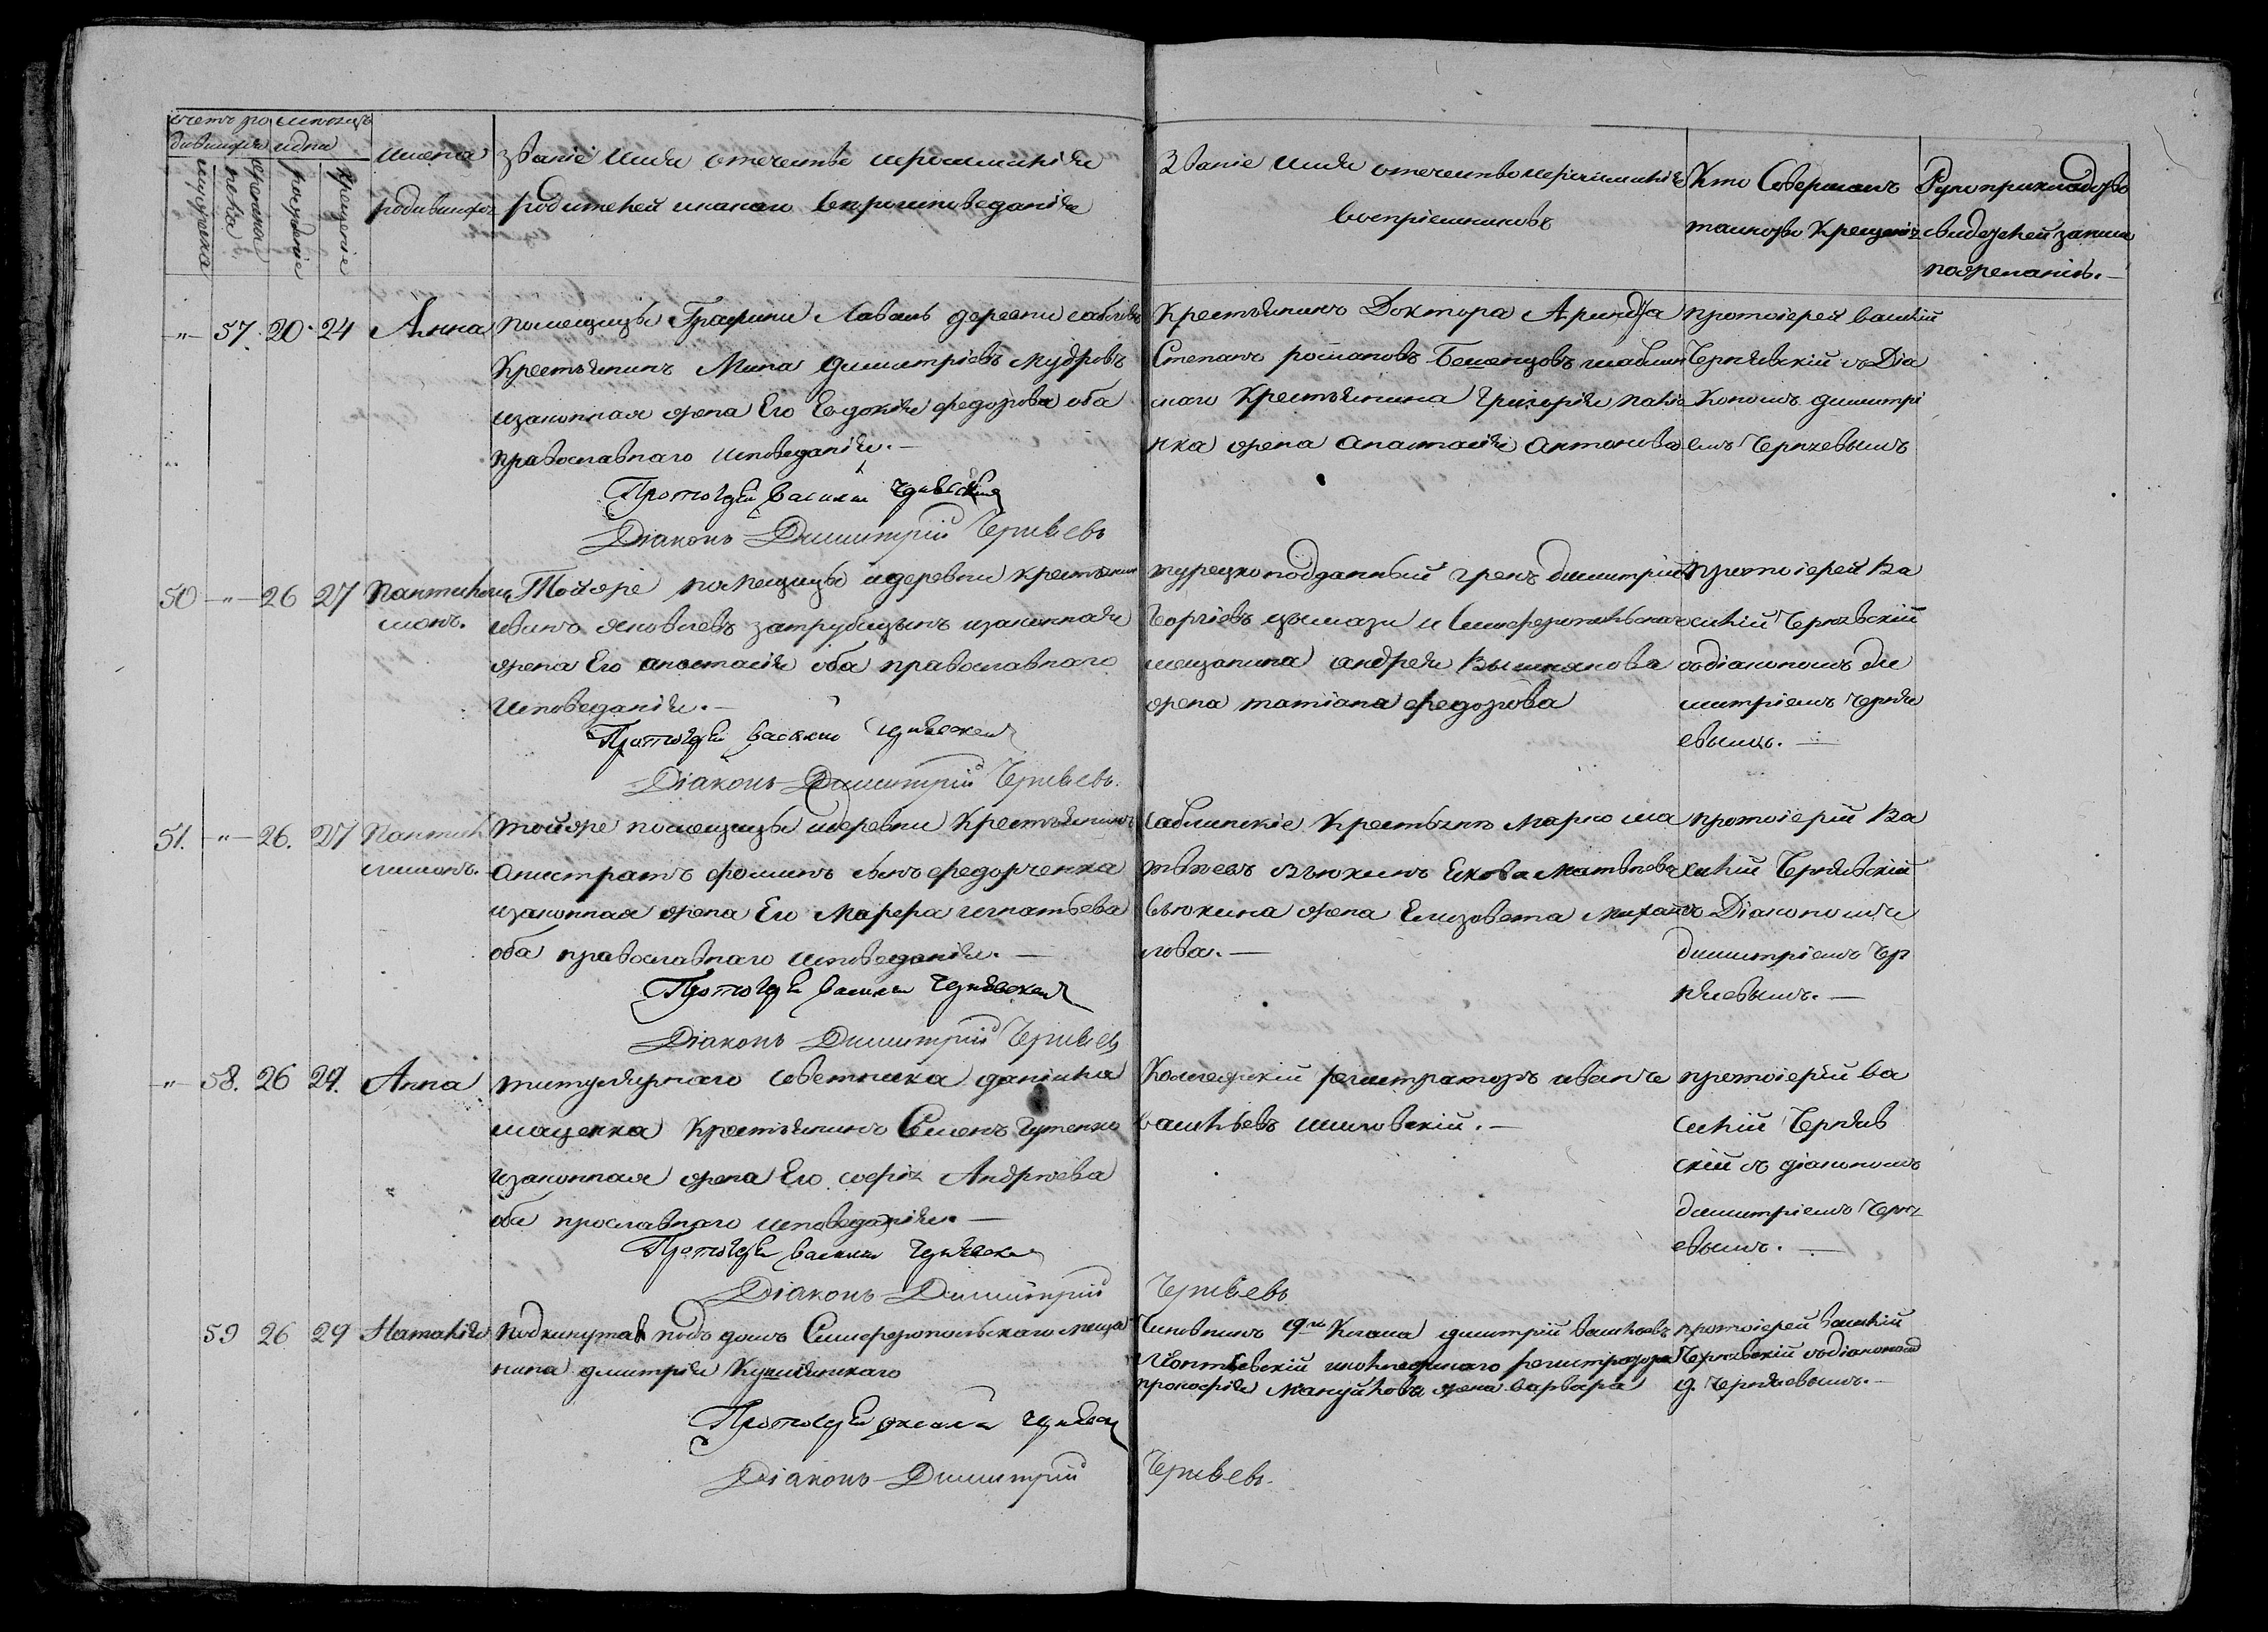 счетъ ро мѣсяцъ
дившихся и дни
мужеска
пола
женска
рожденіе
крещеніе
имена
родившихся
званіе имя отечество и прозваніе
родителей и какаго вероисповеданія
Званіе имя отечество и прозваніе
воспріемниковъ
Кто Совершалъ
таинство Крещенія
Рукоприкладство
свидетелей записи
по желанію.
-"- 57. 20. 24 Анна
помещицы Графини Лаваль деревни саблов
Крестьянинъ Мина Димитріевъ Мудровъ
изаконная жена Его Евдокія федорова оба
православнаго исповеданія.
Протоіерей василій Чернявскій
Діаконъ Димитрій Черняевъ
Крестьянинъ Доктора Арендта
Степанъ романовъ
скаго Крестьянина Григорія
жена анастасія антонова
протоіерей василій
Чернявскій съ Діа
кономъ димитрі
емъ Черняевымъ
50 -"- 26 27 Пантилей
монъ.
Той же помещицы и деревни крестьянин
иванъ яковлевъ затрубицынъ изаконная
жена Его анастасія оба православнаго
исповеданія.
Протоіерей василий Чернявскій
Діаконъ Димитрій Черняевъ.
турецкоподданный грекъ димитрий
Георгіевъ и Симферопольскаго
мещанина андрея Вышнякова
жена татіана федорова
протоіерей Ва
силій Чернявскій
съ діакономъ ди
митріемъ Черня
евымъ.
51. -"- 26. 27 Пантил
лимонъ.
той же помещицы и деревни Крестьянинъ
Анистратъ фоминъ сынъ федорченка
изаконная жена Его Марфа игнатьева
оба православнаго исповеданія.
Протоіерей василий Чернявскій
Діаконъ Димитрій Черняевъ
Саблинскіе Крестьяне Марко ма
твѣевъ Вьюхинъ Якова Матвѣева
вьюхина жена Елизовета Михаи
лова.
протоіерій Ва
силій Чернявскій
съ Діакономъ
димитріемъ Чер
няевымъ.
-"- 58. 26 29. Анна
титулярнаго советника даниила
маценка Крестьянинъ Семенъ Гутенко
изаконная жена Его софія Андрѣева
оба прославнаго исповеданія.
Протоіерей василий Чернявскій
Діаконъ Димитрий
Черняевъ
Колежскій регистраторъ иванъ
васильевъ
протоіерій ва
силій Черняв
скій съ діакономъ
димитріемъ Черня
евымъ.
59 26 29 Наталія
подкинутая подъ домъ Симферопольскаго меща
нина дмитрія
Протоіерей василий Чернявскій
Діаконъ Димитрий
Черняевъ.
Чиновникъ 9го Класа димитрій васильевъ
Леонтьевскій и колнежскаго регистратора
прокофія Мануйлова жена варвара
протоіерей василій
Чернявскій съ діакономъ
д. Черняевымъ.